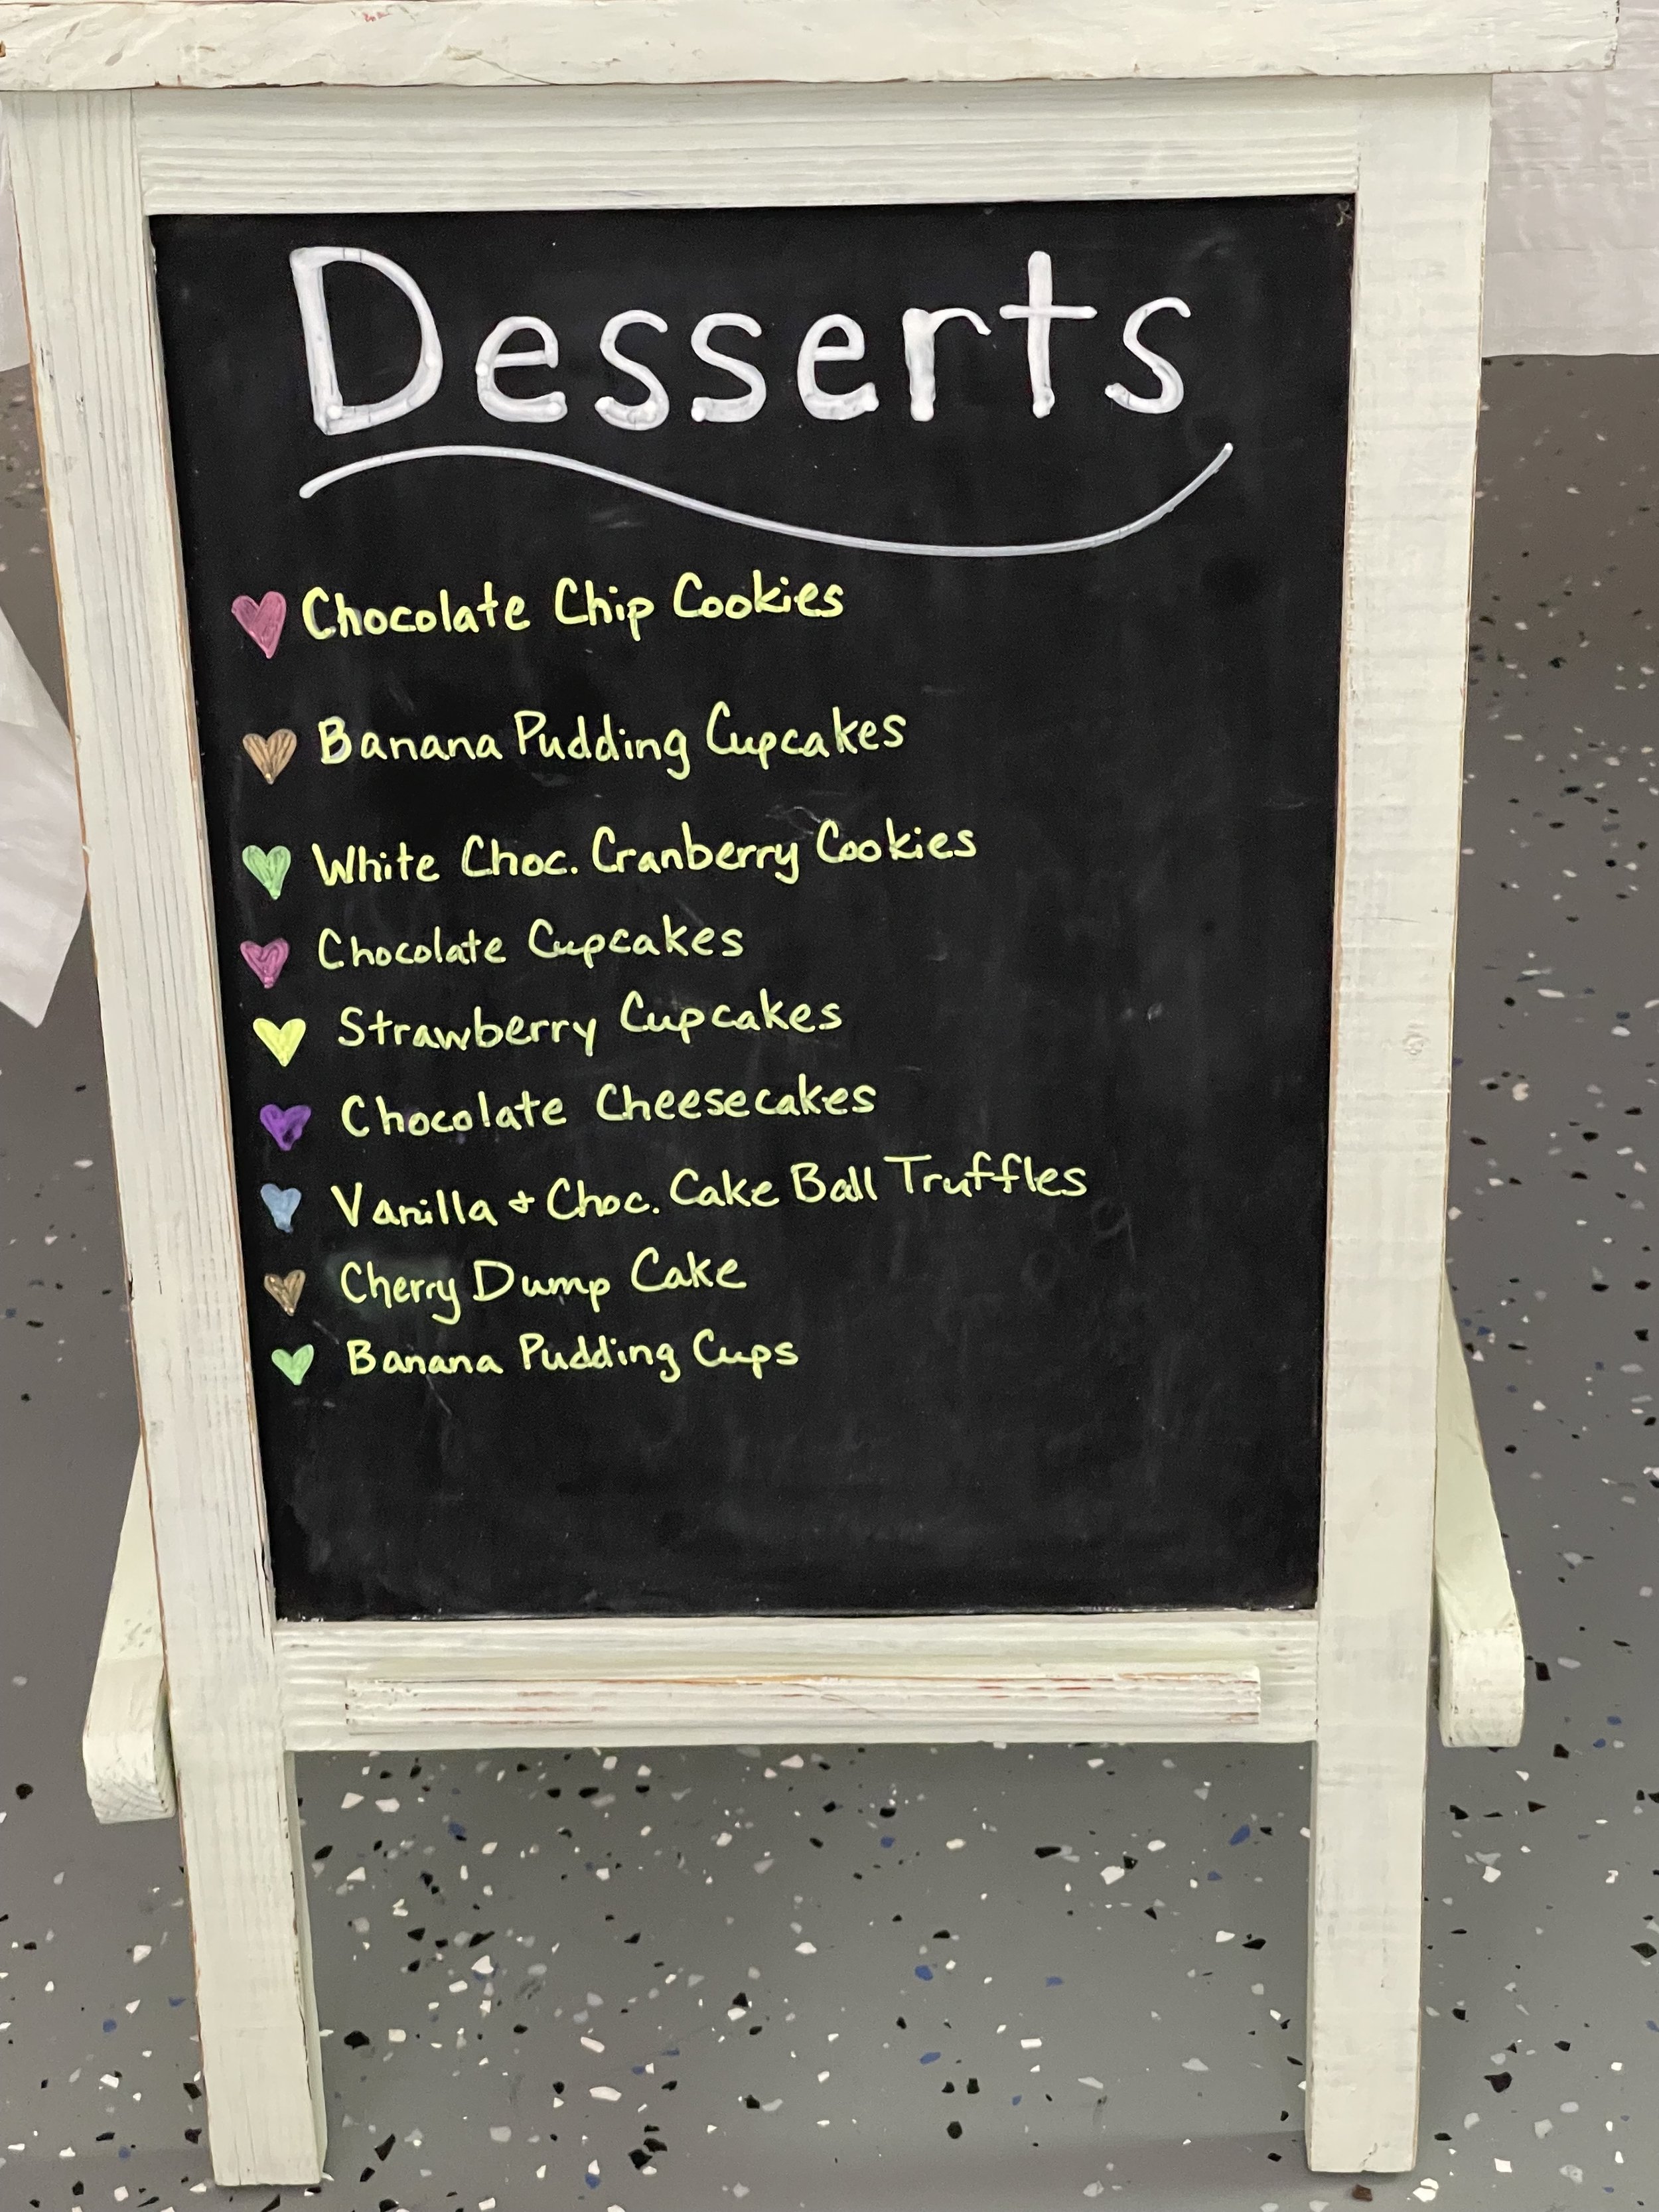 Desserts
Chocolate Chip Cookies
Banana Pudding Cupcakes
White Choc. Cranberry Cookies
Chocolate Cupcakes
Strawberry Cupcakes
Chocolate Cheesecakes
Vanilla + Choc. Cake Ball Truffles
Cherry Dump Cake
Banana Pudding Cups